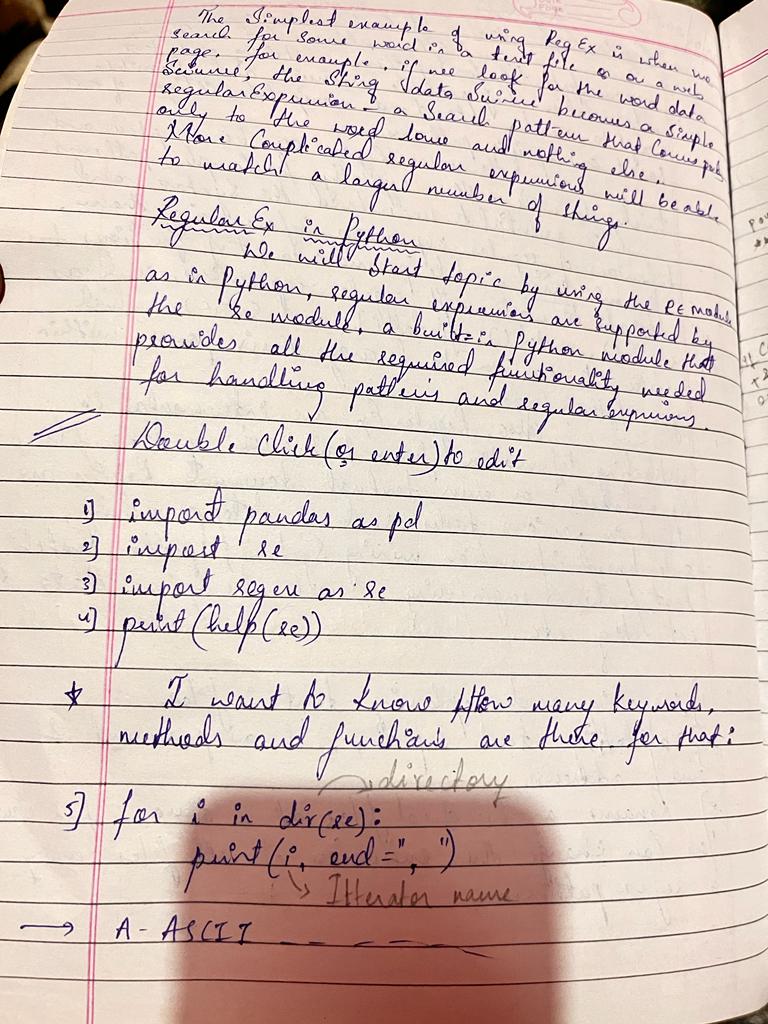 The Simplest example of using RegEx is when we
search for some word in a text file or on a web
page. for example, if we look for the word data
Science, the String data Science becomes a simple
regular Expression - a Search pattern that Corresponds
only to the word love and nothing else.
More Complicated regular expressions will be able
to match a larger number of things.
Regular Ex in Python
We will Start topic by using the RE module
as in Python, regular expressions are supported by
the re module, a built-in Python module that
provides all the required functionality needed
for handling patterns and regular expressions.
Double Click (or enter) to edit
1] import pandas as pd
2] import re
3] import regex as re
4] print (help(re))
* I want to know How many keywords,
methods and functions are there for that:
→ directory
5] for i in dir(re):
print(i, end=", ")
→ Itterator name
→ A - ASCII _ _ _ _